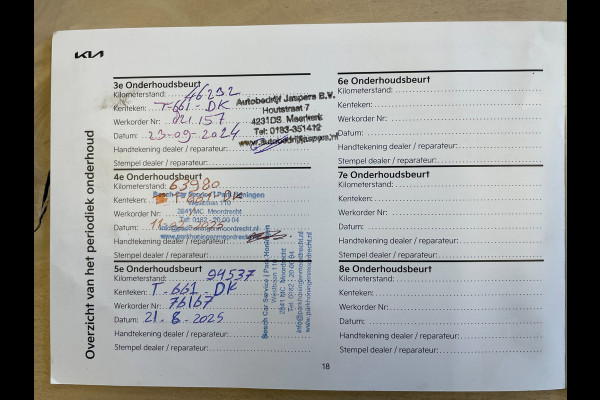 KIA
Overzicht van het periodiek onderhoud
3e Onderhoudsbeurt
Kilometerstand: 46232
Kenteken: T-661-DK
Werkorder Nr: 121.157
Datum: 23-09-2024
Handtekening dealer / reparateur:
Stempel dealer / reparateur:
Autobedrijf Jaspers B.V.
Houtstraat 7
4231DS Meerkerk
Tel: 0183-351412
www.autobedrijfjaspers.nl
4e Onderhoudsbeurt
Kilometerstand: 63980
Kenteken: T-661-DK
Werkorder Nr:
Datum:
Handtekening dealer / reparateur:
Stempel dealer / reparateur:
Bosch Car Service | Park Honingen
Westbaan 110
2841 MC Moordrecht
Tel: 0182 - 20 00 04
info@parkhoningenmoordrecht.nl
www.parkhoningenmoordrecht.nl
5e Onderhoudsbeurt
Kilometerstand: 94537
Kenteken: T-661-DK
Werkorder Nr: 76167
Datum: 21-8-2025
Handtekening dealer / reparateur:
Stempel dealer / reparateur:
Bosch Car Service | Park Honingen
Westbaan 110
2841 MC Moordrecht
Tel: 0182 - 20 00 04
info@parkhoningenmoordrecht.nl
www.parkhoningenmoordrecht.nl
6e Onderhoudsbeurt
Kilometerstand:
Kenteken:
Werkorder Nr:
Datum:
Handtekening dealer / reparateur:
Stempel dealer / reparateur:
7e Onderhoudsbeurt
Kilometerstand:
Kenteken:
Werkorder Nr:
Datum:
Handtekening dealer / reparateur:
Stempel dealer / reparateur:
8e Onderhoudsbeurt
Kilometerstand:
Kenteken:
Werkorder Nr:
Datum:
Handtekening dealer / reparateur:
Stempel dealer / reparateur:
18